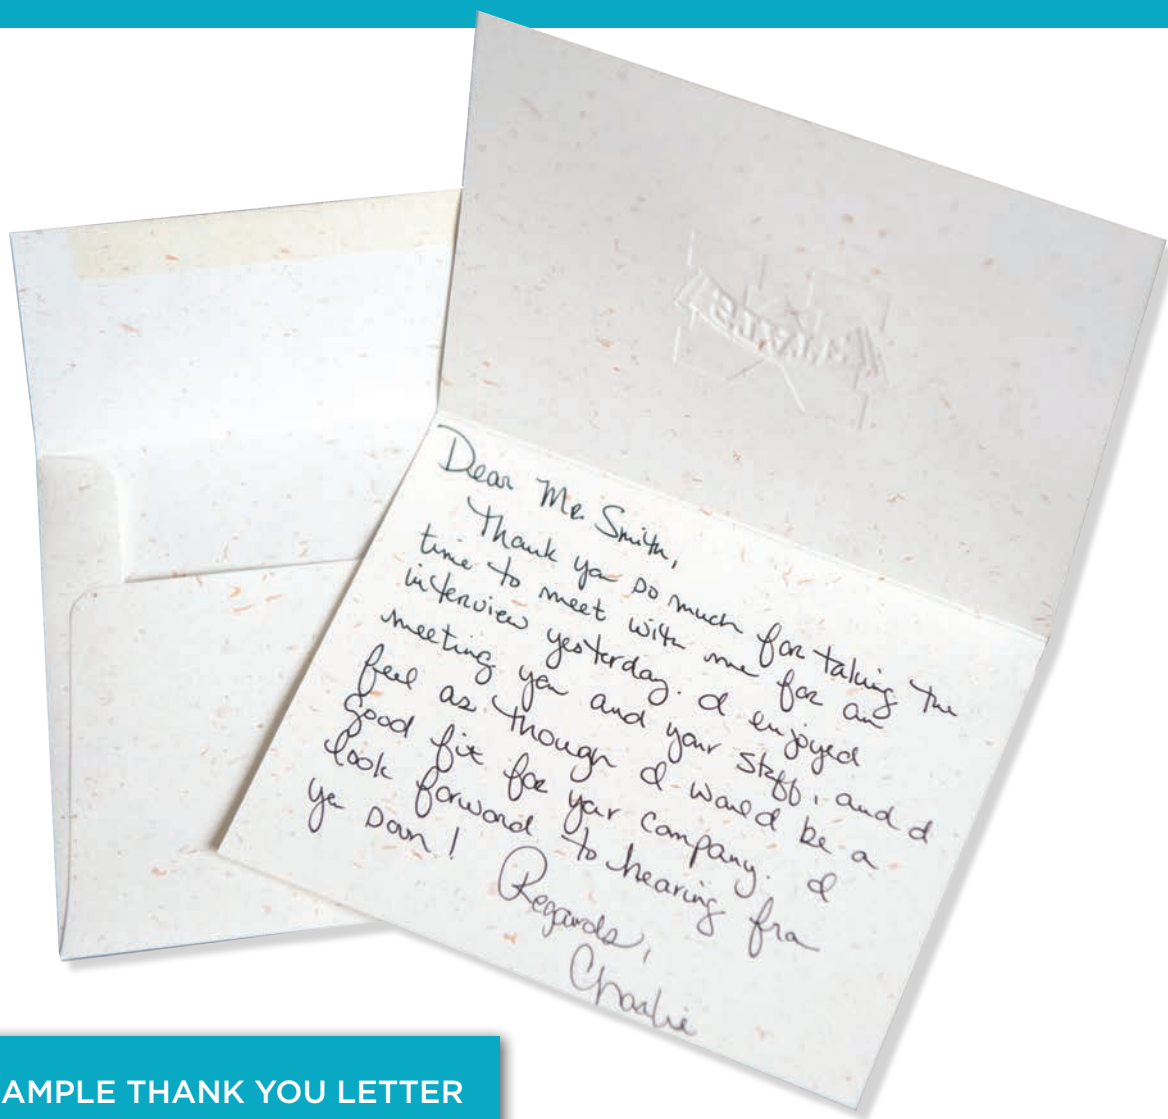 Dear Mr. Smith,
Thank you so much for taking the
time to meet with me for an
interview yesterday. I enjoyed
meeting you and your staff, and I
feel as though I would be a
good fit for your company. I
look forward to hearing from
you soon!
Regards,
Charlie
AMPLE THANK YOU LETTER